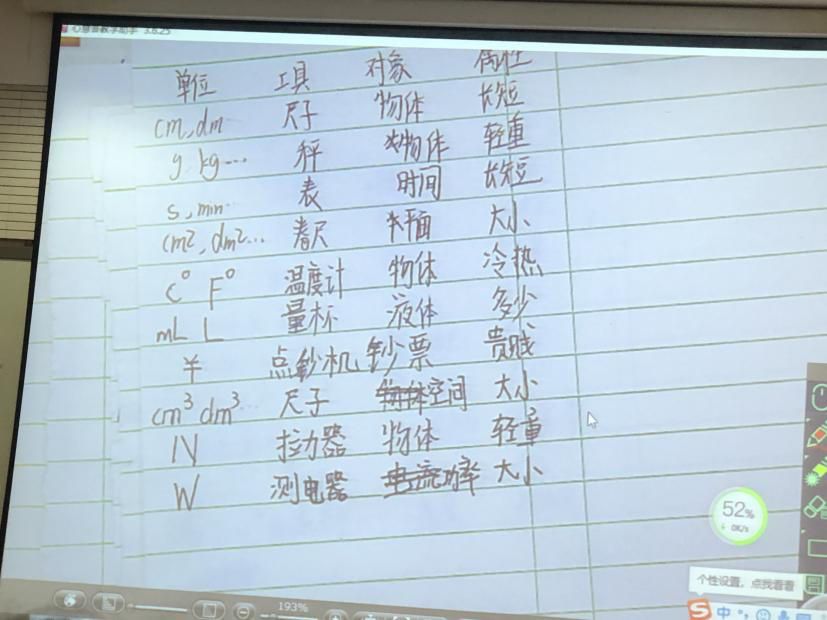 心意答教学助手 3.8.25
单位 工具 对象 属性
cm,dm 尺子 物体 长短
g kg... 秤 物体 轻重
s,min 表 时间 长短
cm2,dm2... 卷尺 平面 大小
C° F° 温度计 物体 冷热
mL L 量杯 液体 多少
¥ 点钞机 钞票 贵贱
cm³ dm³ 尺子 物体空间 大小
N 拉力器 物体 轻重
W 测电器 电流功率 大小
52%
0K/s
个性设置，点我看看
193%
S 中